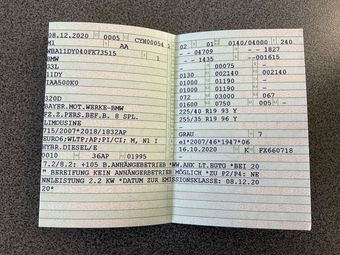 08.12.2020 0005 CYN00054 1
M1 AA
WBA11DY040FK73515
BMW 1
G3L
11DY
IAA500K0
320D
BAYER.MOT.WERKE-BMW
FZ.Z.PERS.BEF.B. 8 SPL.
LIMOUSINE
715/2007*2018/1832AP
EURO6;WLTP;AP;PI/CI; M, N1 I
HYBR.DIESEL/E
0010 36AP 01995
02 01 0140/04000 240
-- 04709 -- -- 1827
-- 1435 --001615
00075 -- --
01130 002140 002140
01190 01130 01190
072 03000 067
01600 0750 005
225/40 R19 93 Y
255/35 R19 96 Y
GRAU 7
e1*2007/46*1947*06
16.10.2020 K FX660718
7.2/8.2: +105 B.ANHÄNGEBETRIEB *WW.AHK LT.BGTG *BEI 20
" BEREIFUNG KEIN ANHÄNGERBETRIEB MÖGLICH *ZU P2/P4: NE
NNLEISTUNG 2.2 KW *DATUM ZUR EMISSIONSKLASSE: 08.12.20
20*